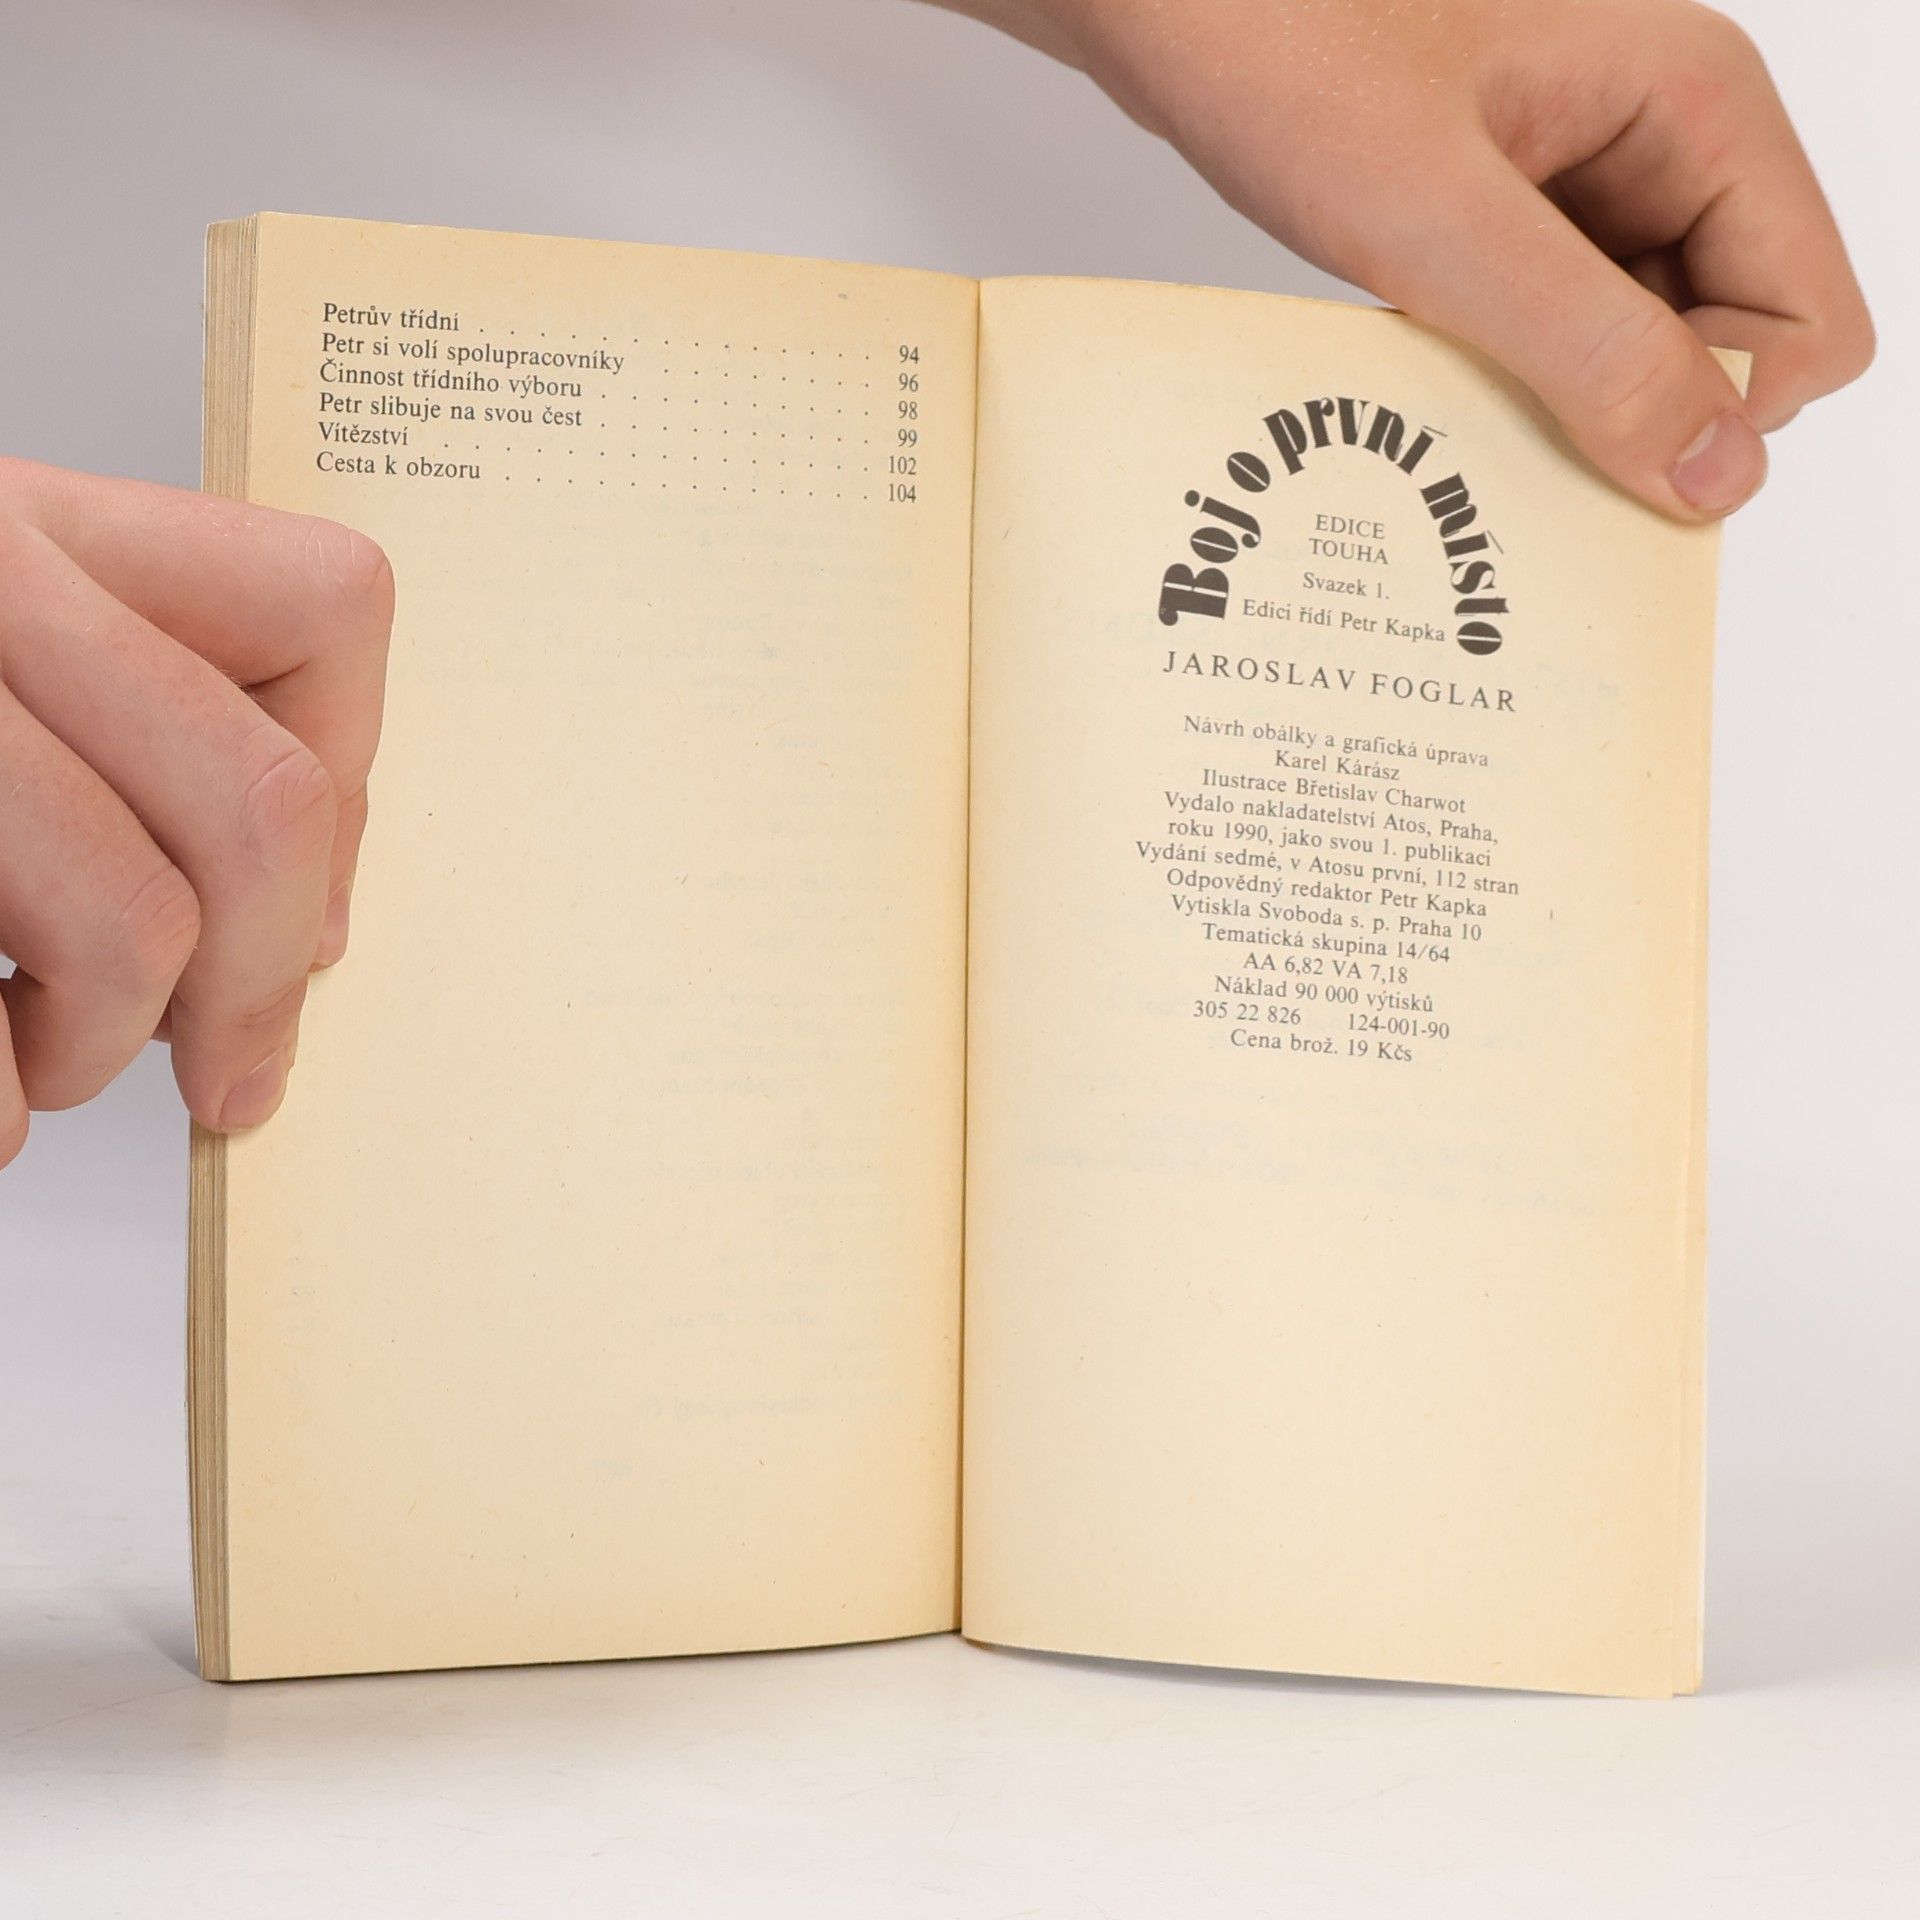 Petrův třídní . . . . . . . . . . . . . 94
Petr si volí spolupracovníky . . . . . . . 96
Činnost třídního výboru . . . . . . . . . 98
Petr slibuje na svou čest . . . . . . . . . 99
Vítězství . . . . . . . . . . . . . . 102
Cesta k obzoru . . . . . . . . . . . . 104
Boj o první místo
EDICE
TOUHA
Svazek 1.
Edici řídí Petr Kapka
JAROSLAV FOGLAR
Návrh obálky a grafická úprava
Karel Kárász
Ilustrace Břetislav Charwot
Vydalo nakladatelství Atos, Praha,
roku 1990, jako svou 1. publikaci
Vydání sedmé, v Atosu první, 112 stran
Odpovědný redaktor Petr Kapka
Vytiskla Svoboda s. p. Praha 10
Tematická skupina 14/64
AA 6,82 VA 7,18
Náklad 90 000 výtisků
305 22 826 124-001-90
Cena brož. 19 Kčs